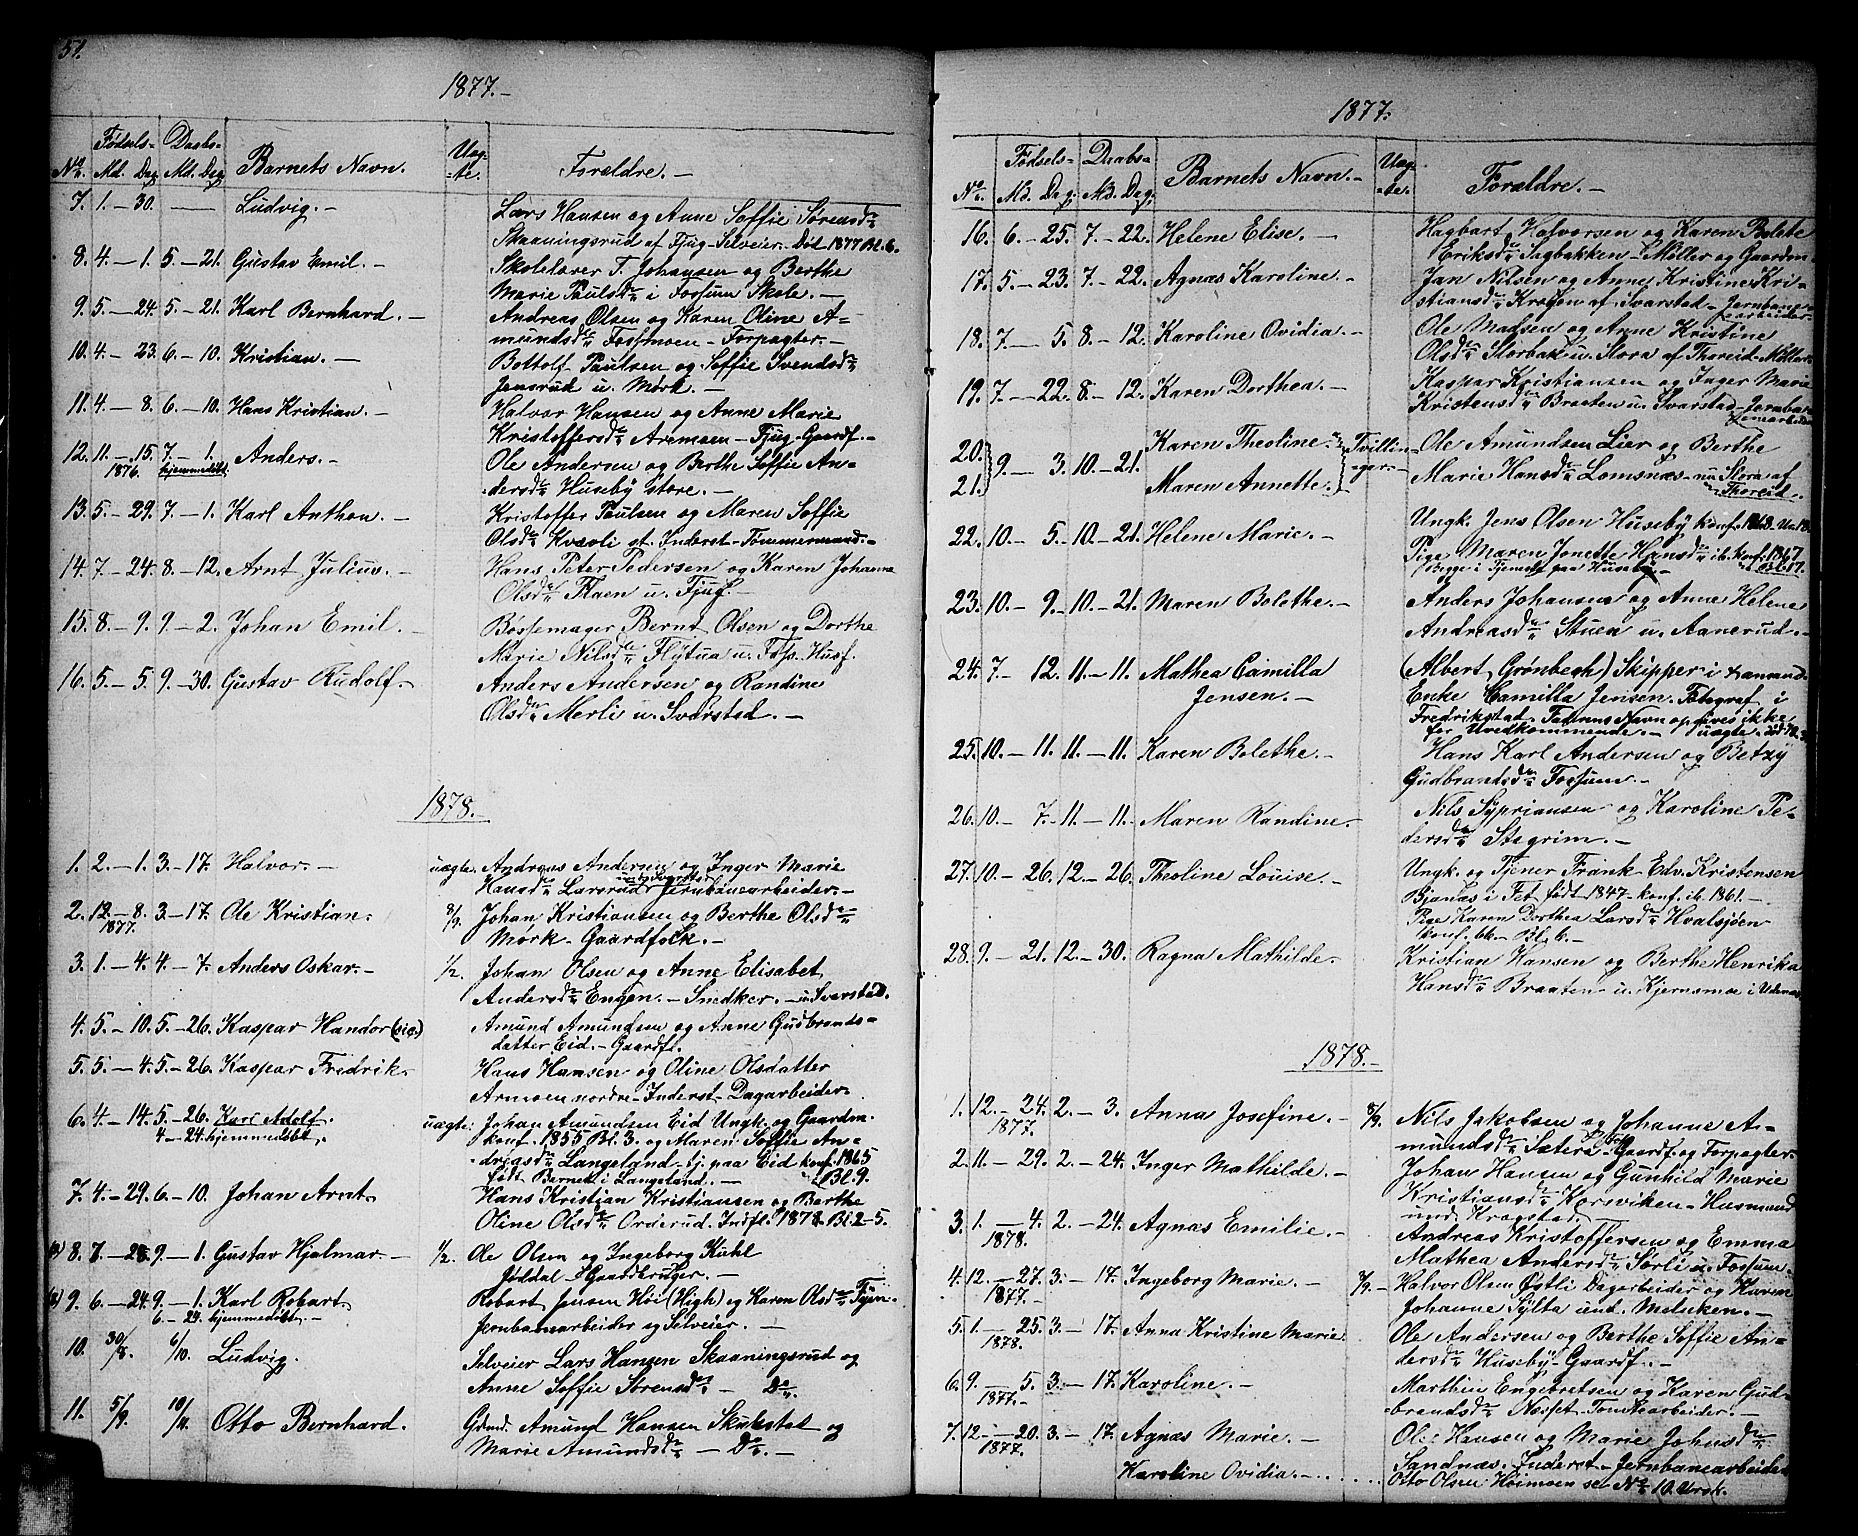 51.
1877.-
Fødsels- Daabs-
No. Md. Dag Md. Dag Barnets Navn. Uæg-te. Forældre.-
7. 1.-30. — Ludvig.- Lars Hansen og Anne Soffie Sørensd.
Skaaningsrud af Fjug-Selveier. Död 1877 Bl. 6.
8. 4.-1. 5.-21. Gustav Emil.- Skolelærer T. Johansen og Berthe
Marie Paulsd. i Fossum Skole.-
9. 5.-24. 5.-21. Karl Bernhard.- Andreas Olsen og Karen Oline A-
mundsd. Fossmoen-Forpagter.-
10. 4.-23. 6.-10. Kristian.- Bottolf Paulsen og Soffie Svendsd.
Jensrud u. Mørk.-
11. 4.-8. 6.-10. Hans Kristian.- Halvor Hansen og Anne Marie
Kristoffersd. Aremoen-Fjug-Gaardf.-
12. 11.-15. 7.-1. Anders.- Ole Andersen og Berthe Soffie An-
1876. hjemmedøbt. dersd. Huseby store.-
13. 5.-29. 7.-1. Karl Anthon.- Kristoffer Paulsen og Maren Soffie
Olsd. Kvæoli st. Inderst-Tømmermand.-
14. 7.-24. 8.-12. Arnt Julius.- Hans Peter Pedersen og Karen Johanne
Olsd. Flaen u. Fjuf.-
15. 8.-9. 9.-2. Johan Emil.- Bøssemager Bernt Olsen og Dorthe
Marie Nilsd. Flytua u. Fos. Husf.
16. 5.-5. 9.-30. Gustav Rudolf.- Anders Andersen og Randine
Olsd. Merli u. Svarstad.-
1878.-
1. 2.-1. 3.-17. Halvor.- uægte. Andreas Andersen og Inger Marie
Hansd. Larsrud Jernbanearbeider.-
2. 12.-8. 3.-17. Ole Kristian. 8/9. Johan Kristiansen og Berthe Olsd.
1877. Mørk-Gaardfolk.-
3. 1.-4. 4.-7. Anders Oskar.- 1/2. Johan Olsen og Anne Elisabet
Andersd. Engen.-Snedker.-u. Svarstad.
4. 5.-10. 5.-26. Kaspar Handor (sic.) Amund Amundsen og Anne Gudbrands-
datter Eid.-Gaardf.
5. 5.-4. 5.-26. Kaspar Fredrik. Hans Hansen og Oline Olsdatter
Armoen nordre-Inderst-Dagarbeider.
6. 4.-14. 5.-26. Karl Adolf. uægte: Johan Amundsen Eid Ungk. og Gaardm.
4-24. hjemmedöbt.- konf. 1855 Bl. 3. og Maren Soffie An-
dreasd. Langeland-tj. paa Eid konf. 1865
födt Barnet i Langeland.- Bl. 9.
7. 4.-29. 6.-10. Johan Arnt. Hans Kristian Kristiansen og Berthe
Oline Olsd. Orderud. Indfl. 1878. Bl. 2-5.
8. 7.-28. 9.-1. Gustav Hjalmar.- 1/2. Ole Olsen og Ingeborg Kuhl
Jøddal-Gaardbruger.-
9. 6.-24. 9.-1. Karl Robart. Robart Jensen Høi (High) og Karen Olsd. Fjøn.
6.-29. hjemmedöbt.- Jernbanearbeider og Selveier.-
10. 30/8. 6/10. Ludvig. Selveier Lars Hansen Skaaningsrud og
Anne Soffie Sørensd. — Do.
11. 5/9. 10/11. Otto Bernhard. Gdmd. Amund Hansen Skukstad og
Marie Amundsd. — Do.-
1877.
Fødsels- Daabs-
No. Md. Dag. Md. Dag. Barnets Navn.- Uæg-te. Forældre.-
16. 6.-25. 7.-22. Helene Elise.- Hagbart Halvorsen og Karen Bolete
Eriksd. Sagbakken-Møller og Gaardm.
17. 5.-23. 7.-22. Agnæs Karoline.- Jan Nilsen og Anne Kristine Kri-
stiansd. Krogen af Svarstad-Jernbane-
arbeider.
18. 7.-5. 8.-12. Karoline Ovidia.- Ole Madsen og Anne Kristine
Olsd. Storbak u. Stora af Thoreid-Møller.
19. 7.-22. 8.-12. Karen Dorthea.- Kaspar Kristiansen og Inger Marie
Kristensd. Braaten u. Svarstad-Jernba-
nearbeider
20. Karen Theoline.- Tvillin- Ole Amundsen Lier og Berthe
9.-3. 10.-21.
21. Maren Annette.- ger.- Marie Hansd. Lomsnæs-nu Stora af
Thoreid.
22. 10.-5. 10.-21. Helene Marie.- Ungk. Jens Olsen Huseby konf. 1868.
Pige Maren Jonette Hansd. ib. konf. 1867
Begge i Tjeneste paa Huseby.-
23. 10.-9. 10.-21. Maren Bolethe.- Anders Johansen og Anne Helene
Andreasd. Stuen u. Aanerud.-
24. 7.-12. 11.-11. Mathea Camilla (Albert Grønbegh) Skipper i
Jensen.- Enke Camilla Jensen. Fotograf i
Fredrikstad. Faderens Navn opgives ikke
for Uvedkommende.- uægte.
25. 10.-11. 11.-11. Karen Bolethe.- Hans Karl Andersen og Betzy
Gudbrandsd. Fossum.-
26. 10.-7. 11.-11. Maren Randine.- Nils Sypriansen og Karoline Pe-
dersd. Stegrim.-
27. 10.-26. 12.-26. Theoline Louise.- Ungk. og Tjener Frank Edv. Kristensen
Bjanæs i Fet født 1847-konf. ib. 1861.-
Pige Karen Dorthea Larsd. Hvalsjøen
konf. 66.- Bl. 6.-
28. 9.-21. 12.-30. Ragna Mathilde.- Kristian Hansen og Berthe Henrika
Hansd. Braaten u. Kjernsmoe i Udenæs
1878.-
1. 12.-24. 2.-3. Anna Josefine.- 8/9. Nils Jakobsen og Johanne A-
1877. mundsd. Sæteri-Gaardf. og Forpagter.
2. 11.-29. 2.-24. Inger Mathilde.- Johan Hansen og Gunhild Marie
Kristiansd. Korsviken-Husmand
und. Krogstad.
3. 1.-4. 2.-24. Agnæs Emilie.- Andreas Kristoffersen og Emma
1878. Mathea Andersd. Sørli u. Fossum.-
4. 12.-27. 3.-17. Ingeborg Marie.- 7/9.- Halvor Olsen Østli Dagarbeider og Karen
1877. Johanne Sylta und. Melnken.-
5. 1.-25. 3.-17. Anna Kristine Marie Ole Andersen og Berthe Soffie An-
1878. dersd. Huseby-Gaardf.-
6. 9.-5. 3.-17. Karoline.- Marthin Engebretsen og Karen Gud-
1877.- brandsd. Næsset-Tomtearbeider.-
7. 12.-20. 3.-17. Agnæs Marie.- Ole Hansen og Marie Johnsd.
1877. Sandnæs. Inderst-Jernbanearbeider
Karoline Ovidia.-...... Otto Olsen Høimoen se No. 10 Ursk.